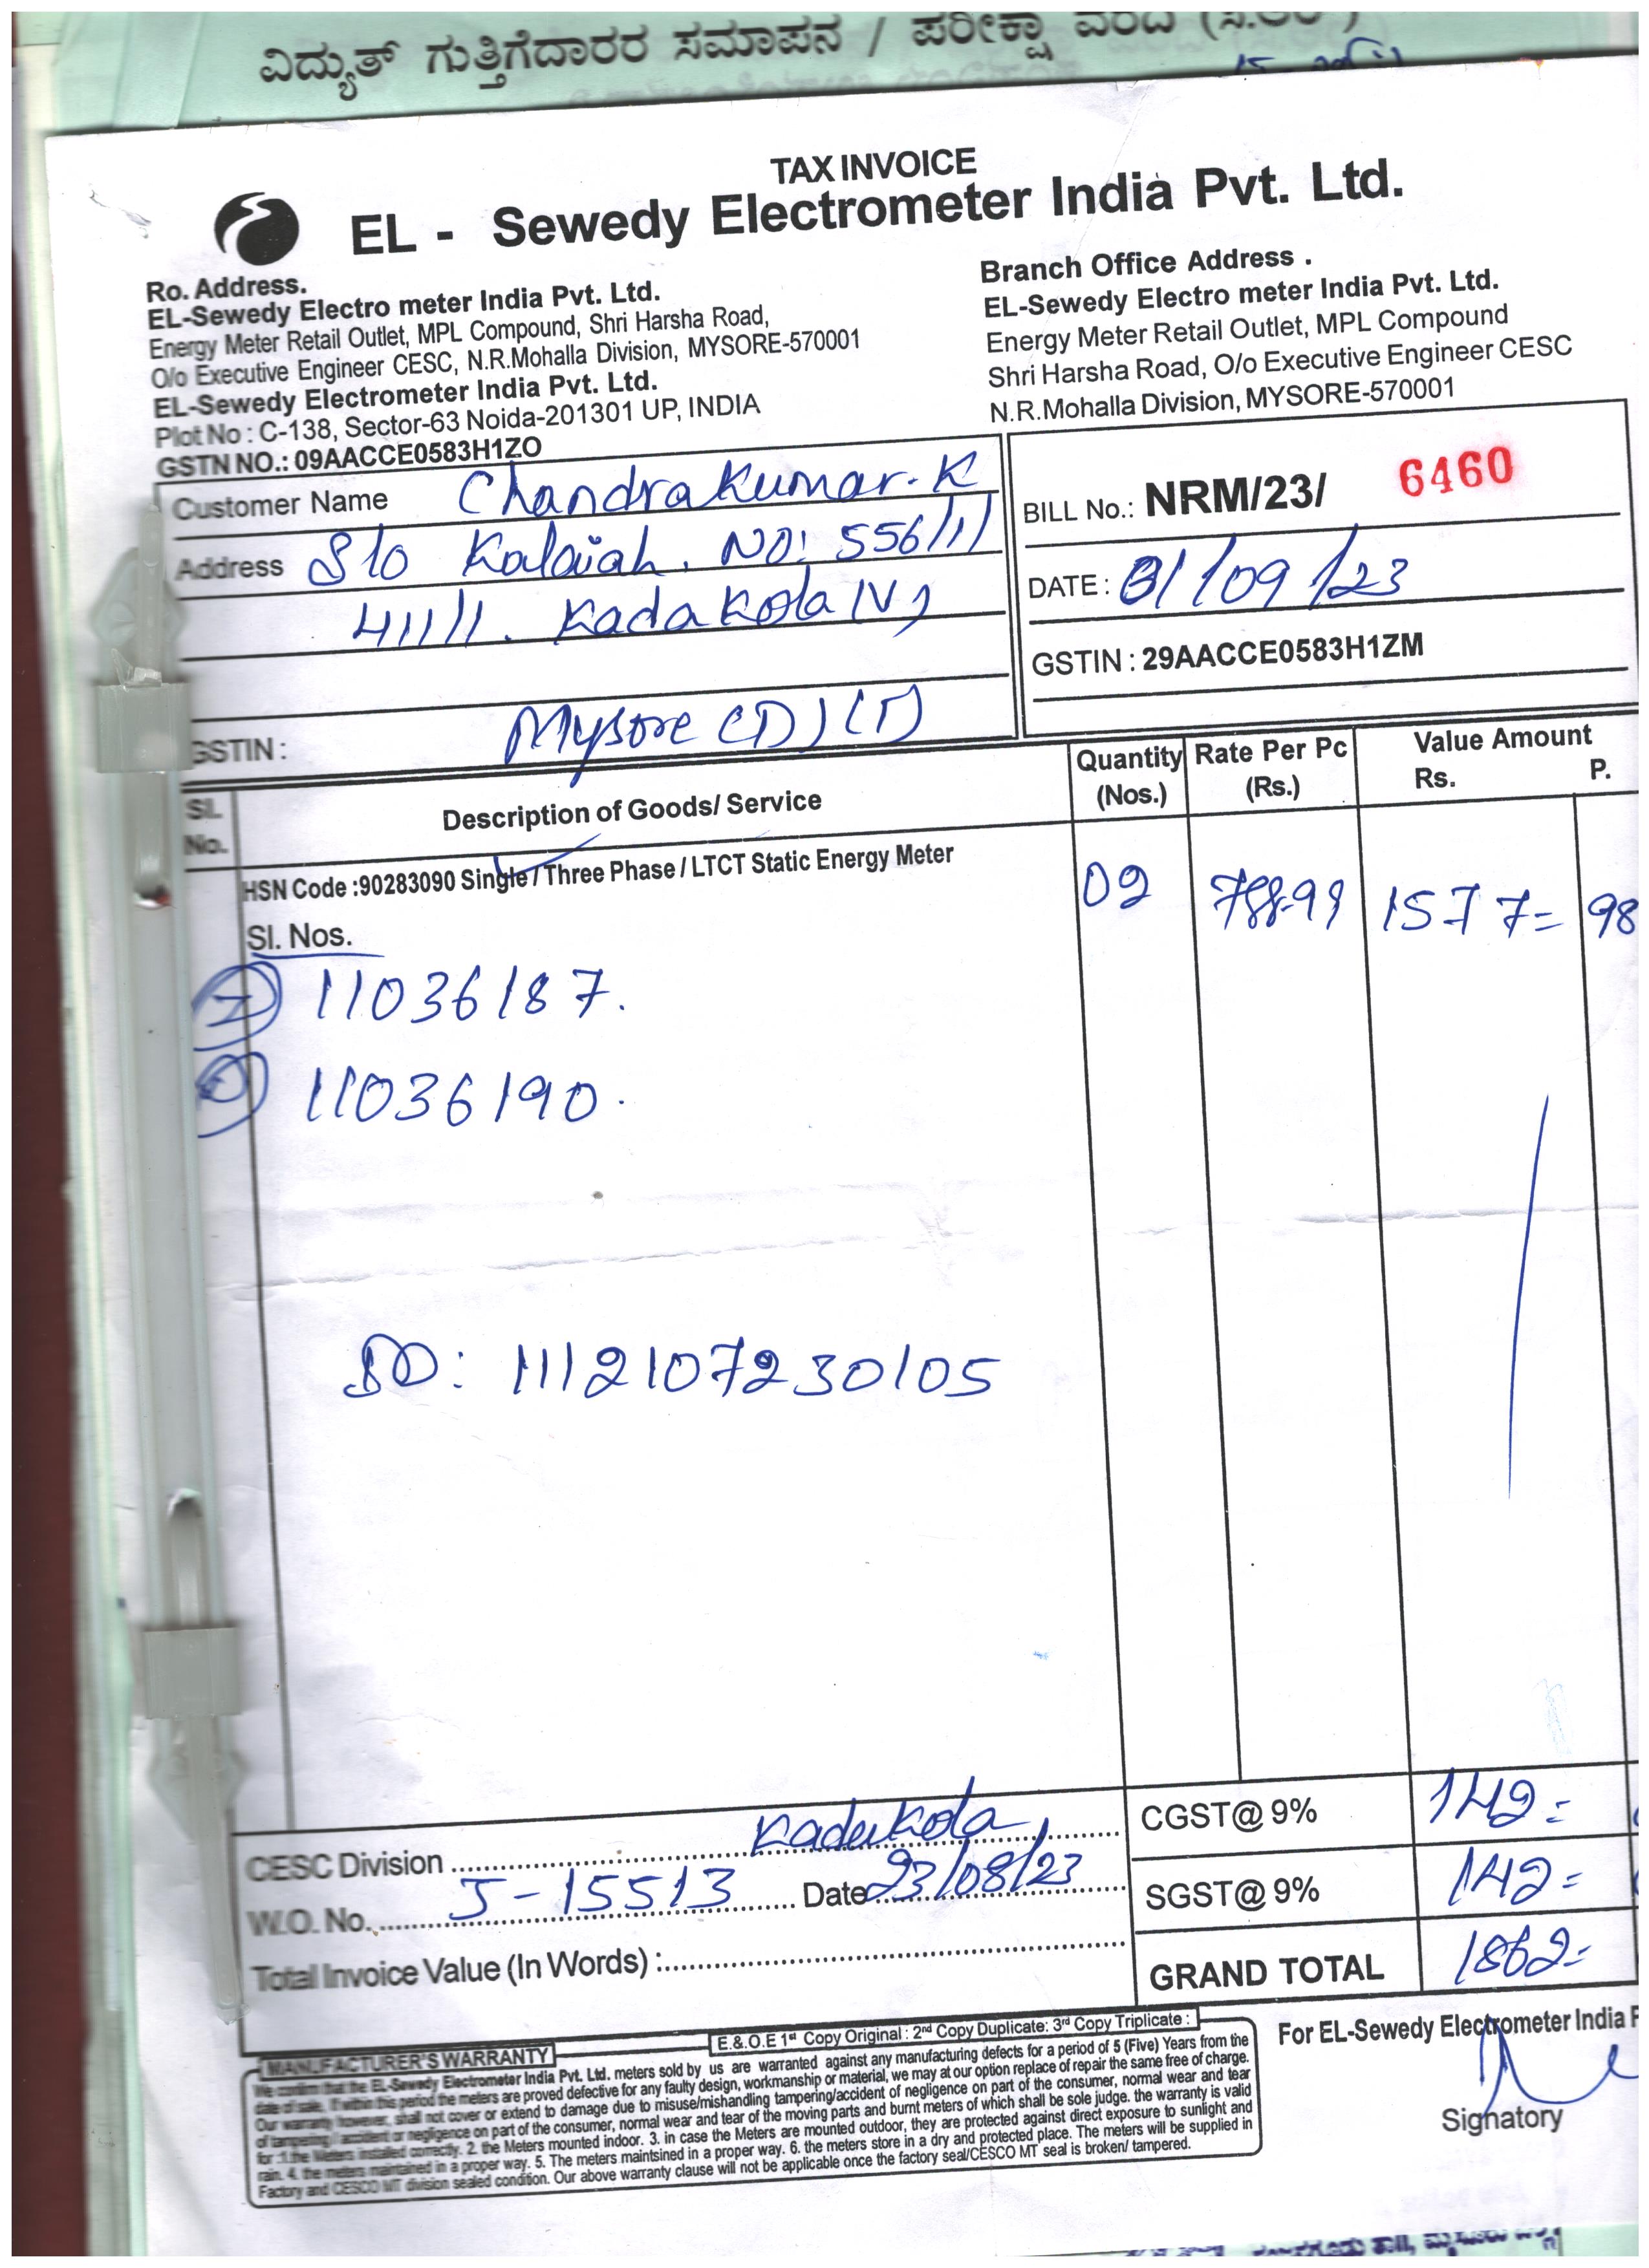 ವಿದ್ಯುತ್ ಗುತ್ತಿಗೆದಾರರ ಸಮಾಪನ / ಪರೀಕ್ಷಾ ವರದಿ
TAX INVOICE
EL - Sewedy Electrometer India Pvt. Ltd.
Ro. Address.
EL-Sewedy Electro meter India Pvt. Ltd.
Energy Meter Retail Outlet, MPL Compound, Shri Harsha Road,
O/o Executive Engineer CESC, N.R.Mohalla Division, MYSORE-570001
EL-Sewedy Electrometer India Pvt. Ltd.
Plot No : C-138, Sector-63 Noida-201301 UP, INDIA
GSTN NO.: 09AACCE0583H1ZO
Branch Office Address .
EL-Sewedy Electro meter India Pvt. Ltd.
Energy Meter Retail Outlet, MPL Compound
Shri Harsha Road, O/o Executive Engineer CESC
N.R.Mohalla Division, MYSORE-570001
Customer Name Chandrakumar.K
Address S/o Kalaiah. NO: 556/1/
411/1. Kadakola (V)
GSTIN : Mysore (D) (T)
BILL No.: NRM/23/ 6460
DATE : 01/09/23
GSTIN : 29AACCE0583H1ZM
Sl. No. Description of Goods/ Service Quantity (Nos.) Rate Per Pc (Rs.) Value Amount Rs. P.
HSN Code :90283090 Single / Three Phase / LTCT Static Energy Meter 02 788.99 1577= 98
Sl. Nos.
11036187.
11036190.
SO: 1112107230105
CESC Division Kadakola
W.O. No. J-15513 Date 23/08/23
Total Invoice Value (In Words) :
CGST@ 9% 142=
SGST@ 9% 142=
GRAND TOTAL 1862=
E.& O.E 1st Copy Original : 2nd Copy Duplicate: 3rd Copy Triplicate :
MANUFACTURER'S WARRANTY
We confirm that the EL-Sewedy Electrometer India Pvt. Ltd. meters sold by us are warranted against any manufacturing defects for a period of 5 (Five) Years from the
date of sale. If within this period the meters are proved defective for any faulty design, workmanship or material, we may at our option replace of repair the same free of charge.
Our warranty however, shall not cover or extend to damage due to misuse/mishandling tampering/accident of negligence on part of the consumer, normal wear and tear
of tampering / accident or negligence on part of the consumer, normal wear and tear of the moving parts and burnt meters of which shall be sole judge. the warranty is valid
for :1.the Meters installed correctly. 2. the Meters mounted indoor. 3. in case the Meters are mounted outdoor, they are protected against direct exposure to sunlight and
rain. 4. the meters maintained in a proper way. 5. The meters maintsined in a proper way. 6. the meters store in a dry and protected place. The meters will be supplied in
Factory and CESCO MT division sealed condition. Our above warranty clause will not be applicable once the factory seal/CESCO MT seal is broken/ tampered.
For EL-Sewedy Electrometer India P
Signatory